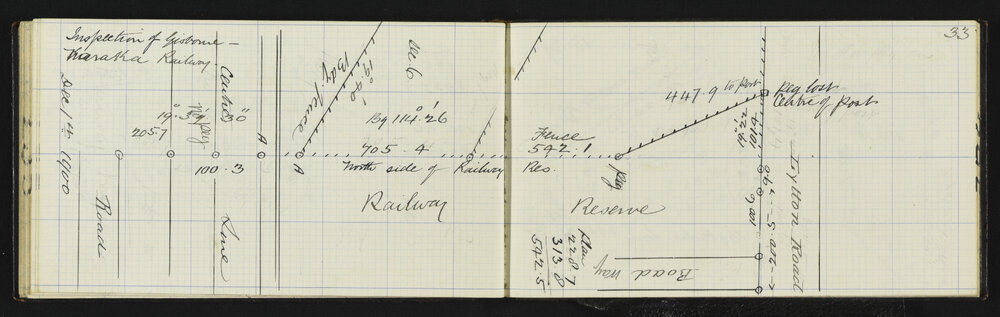 33
Inspection of Gisborne –
Karaka Railway
Dec. 1st 1900
Road
2057
Peg
Centre
Line
100.3
A
A
Bdy. Fence
19° 20'
Sec. 6
Bg 114° 26'
705.4
North side of Railway
Railway
Fence
542.1
Res.
Peg
Reserve
Plan
228.7
313.8
542.5
Road Way
447.9 to post
Peg lost
Centre of Post
Lytton Road